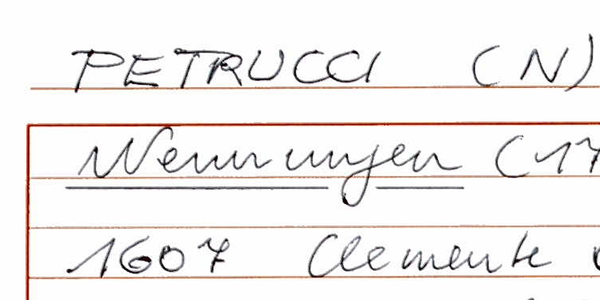 PETRUCCI (N)
Nennungen (17
1607 Clemente